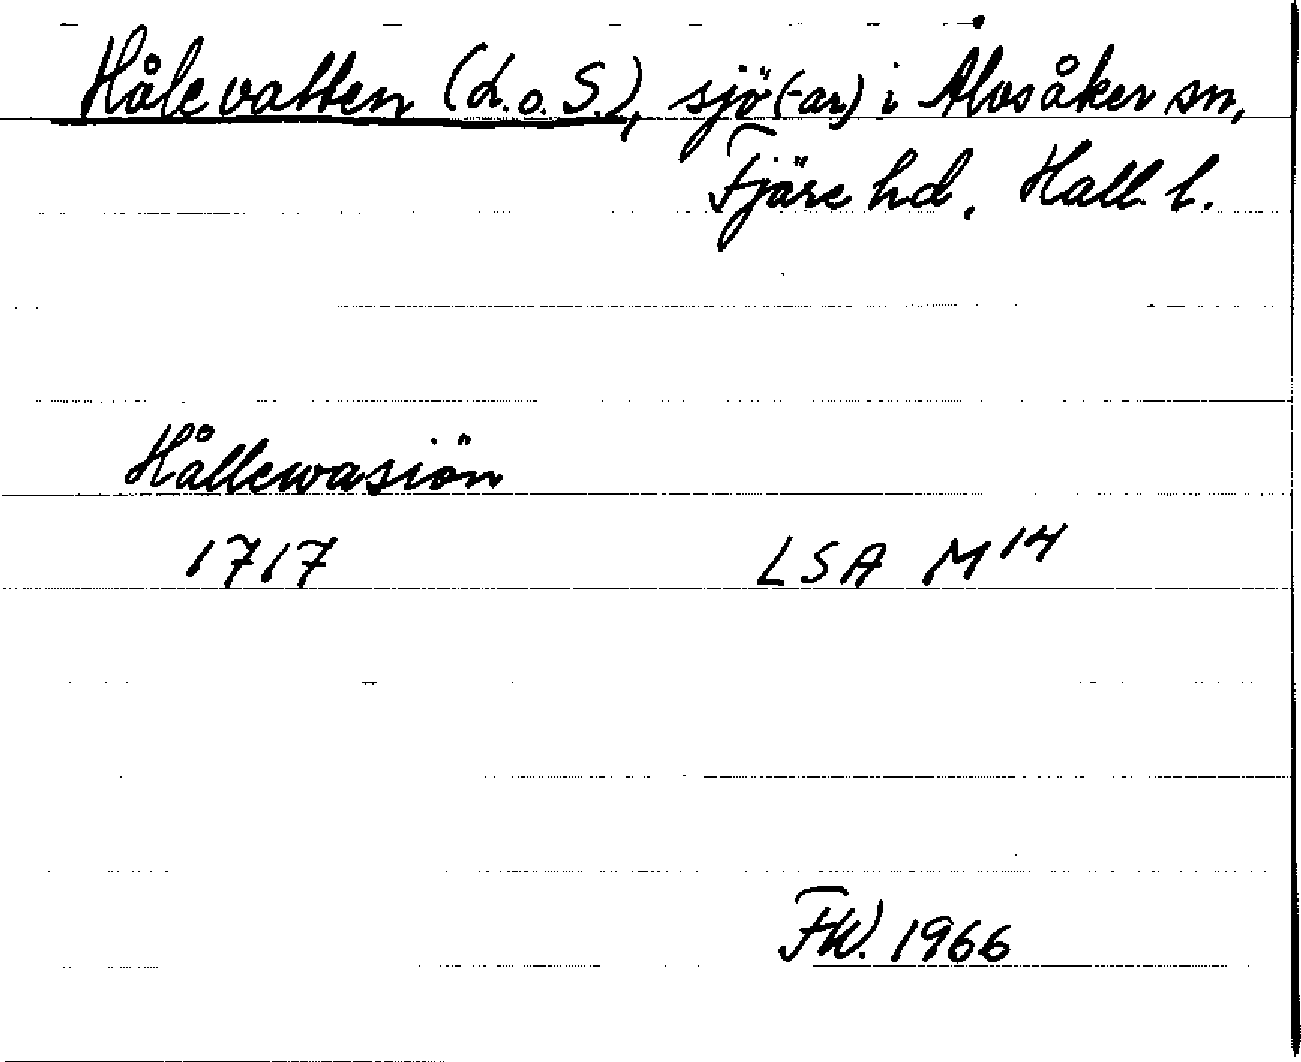 Hålevatten (L. o. S.), sjö(-ar) i Älvsåker sn,
Fjäre hd, Hall. l.
Hållewasiön
1717 LSA M14
FW. 1966